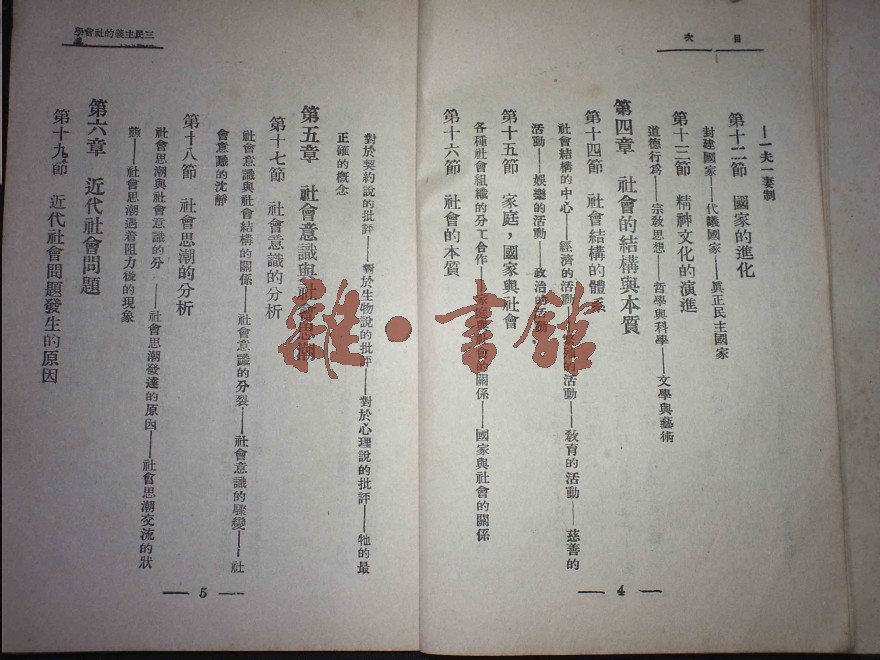 目次
——一夫一妻制
第十二節　國家的進化
封建國家——代議國家——眞正民主國家
第十三節　精神文化的演進
道德行爲——宗敎思想——哲學與科學——文學與藝術
第四章　社會的結構與本質
第十四節　社會結構的體系
社會結構的中心——經濟的活動——的活動——敎育的活動——慈善的
活動——娛樂的活動——政治的活動
第十五節　家庭，國家與社會
各種社會組織的分工合作——家庭與社會的關係——國家與社會的關係
第十六節　社會的本質
— 4 —
三民主義的社會學
對於契約說的批評——對於生物說的批評——對於心理說的批評——牠的最
正確的概念
第五章　社會意識與社會思潮
第十七節　社會意識的分析
社會意識與社會結構的關係——社會意識的分裂——社會意識的驟變——社
會意識的沈靜
第十八節　社會思潮的分析
社會思潮與社會意識的分——社會思潮發達的原因——社會思潮交流的狀
態——社會思潮遇着阻力後的現象
第六章　近代社會問題
第十九節　近代社會問題發生的原因
— 5 —
雜·書館